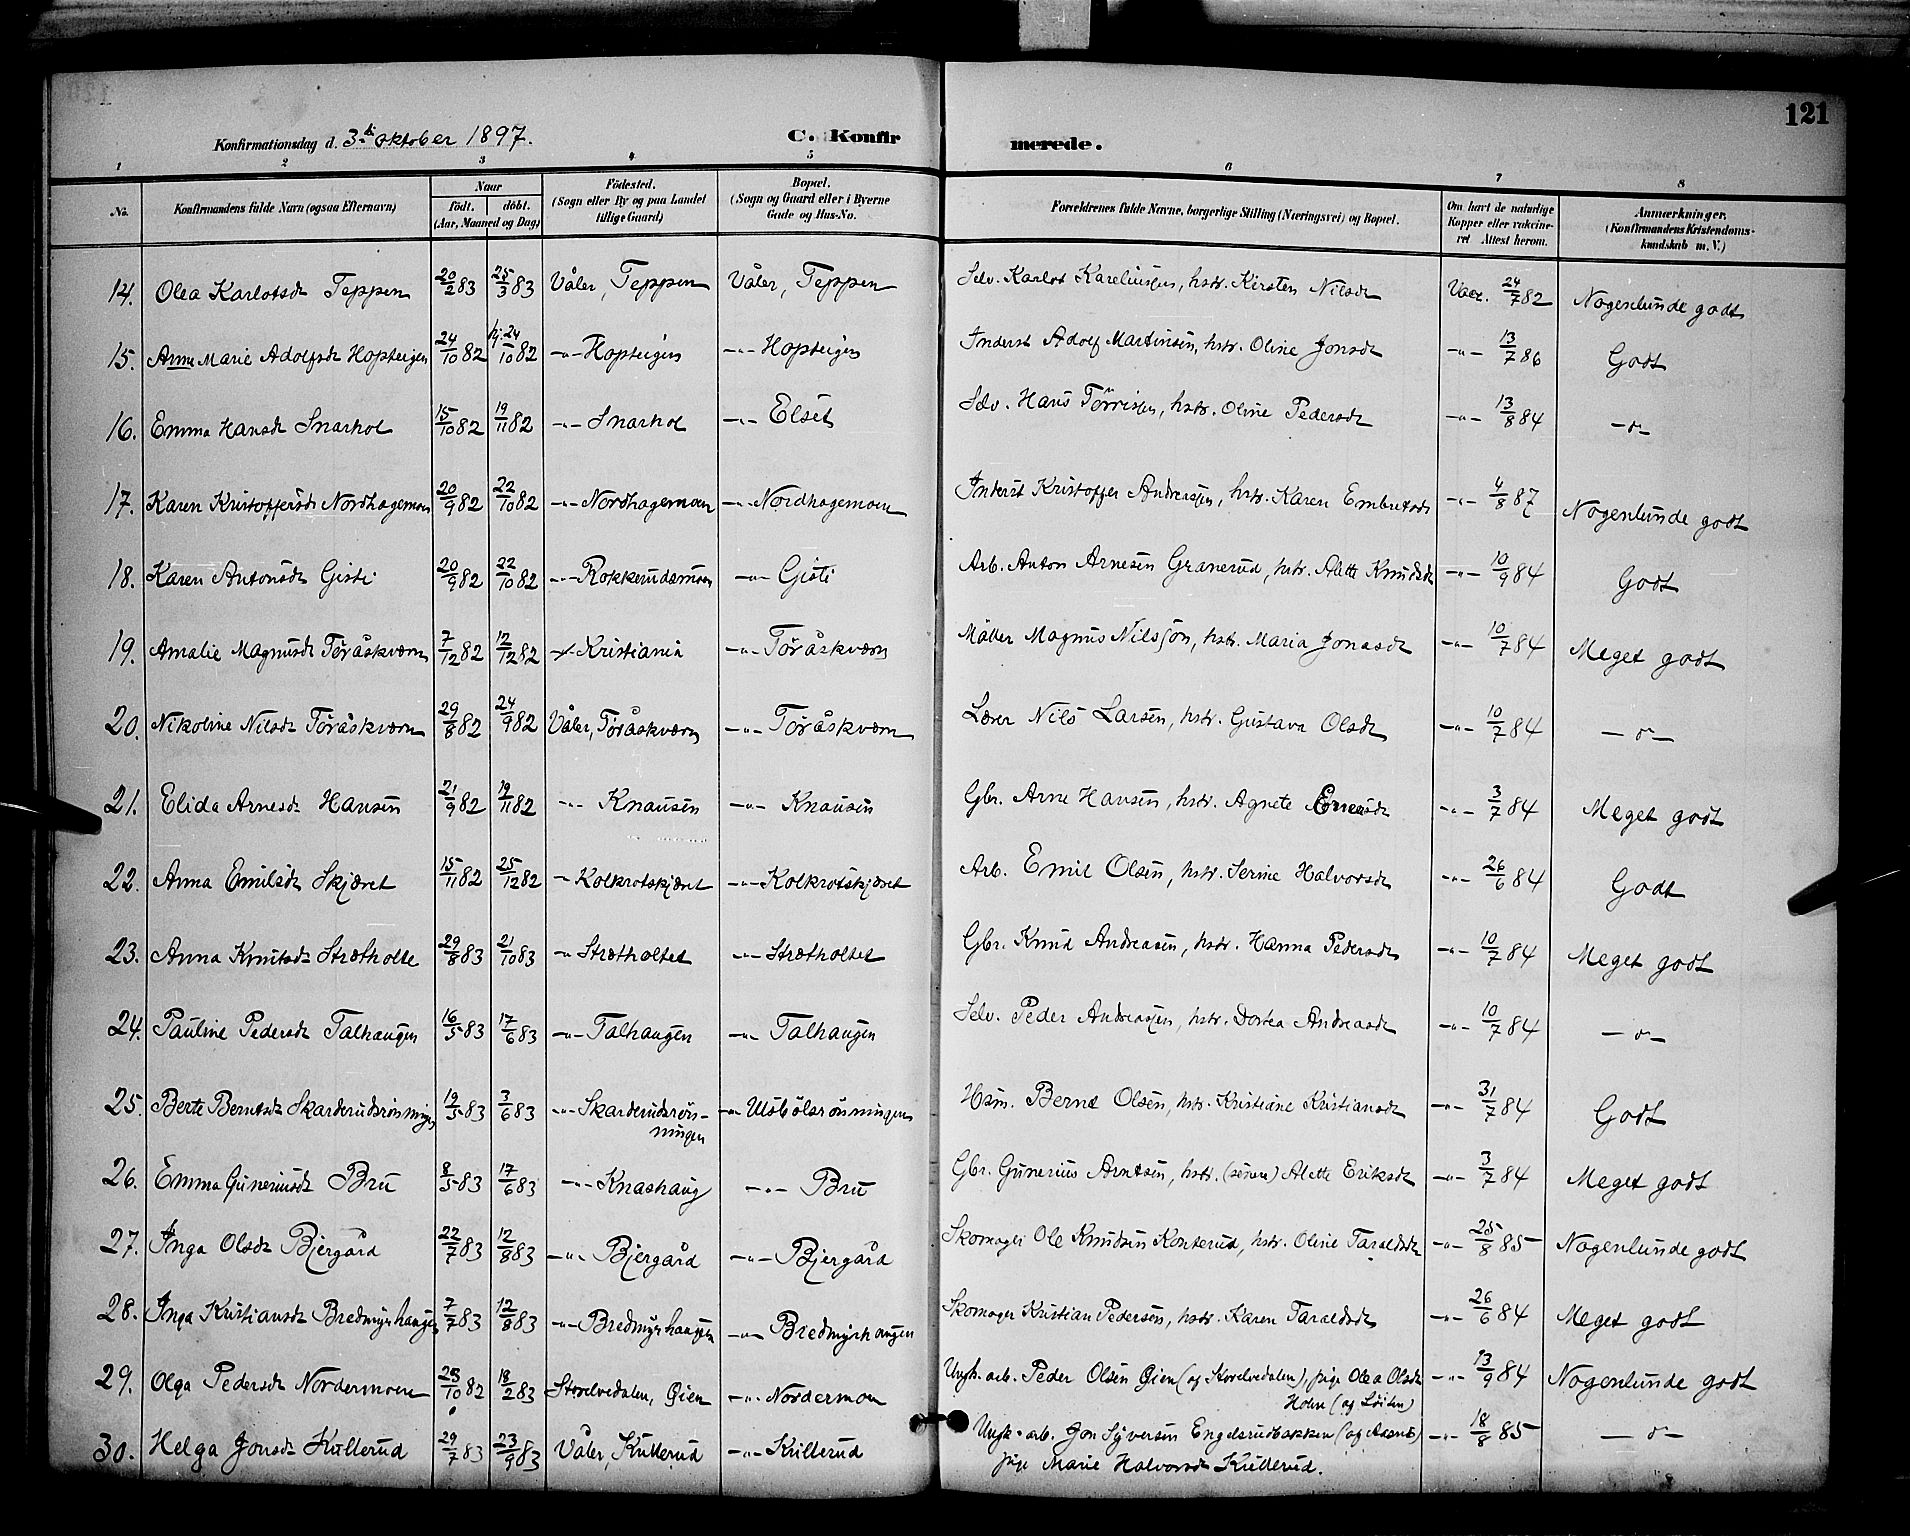 121
Konfirmationsdag d. 3die oktober 1897.
C. Konfirmerede.
1 2 3 4 5 6 7 8
No. Konfirmandens fulde Navn (ogsaa Efternavn) Naar født. døbt. (Aar, Maaned og Dag) Fødested. (Sogn eller By og paa Landet tillige Gaard) Bopæl. (Sogn og Gaard eller i Byerne Gade og Hus-No. Forældrenes fulde Navne, borgerlige Stilling (Næringsvei) og Bopæl. Om havt de naturlige Kopper eller vakcineret Attest herom. Anmærkninger. (Konfirmandens Kristendomskundskab m. V.)
14. Olea Karlotsdr Teppen 20/2 83 25/3 83 Våler, Teppen Våler, Teppen Selv. Karlot Kareliussen, hstr. Kirsten Nilsdr Vacc. 24/7 82 Nogenlunde godt
15. Anne Marie Adolfsdr Hopteigen 24/10 82 hj. 24/10 82 -"- Hopteigen -"- Hopteigen Inderst Adolf Martinsen, hstr. Oline Jonsdr -"- 13/7 86 Godt
16. Emma Hansdr Snarhol 15/10 82 19/11 82 -"- Snarhol -"- Elset Selv. Hans Tørrisen, hstr. Oline Pedersdr -"- 13/8 84 -"-
17. Karen Kristoffersdr Nordhagemoen 20/9 82 22/10 82 -"- Nordhagemoen -"- Nordhagemoen Inderst Kristoffer Andreassen, hstr. Karen Embretsdr -"- 4/8 87 Nogenlunde godt
18. Karen Antonsdr Gisti 20/9 82 22/10 82 -"- Rokkerudsmoen -"- Gisti Arb. Anton Arnesen Granerud, hstr. Alette Knudsdr -"- 10/9 84 Godt
19. Amalie Magnusdr Töråskværn 7/12 82 12/12 82 Kristiania -"- Töråskværn Møller Magnus Nilsson, hstr. Maria Jonasdr -"- 10/7 84 Meget godt
20. Nikoline Nilsdr Töråskværn 29/8 82 24/9 82 Våler, Töråskværn -"- Töråskværn Lærer Nils Larsen, hstr. Gustava Olsdr -"- 10/7 84 -"-
21. Elida Arnesdr Hansen 21/9 82 19/11 82 -"- Knausen -"- Knausen Gbr. Arne Hansen, hstr. Agnete -"- 3/7 84 Meget godt
22. Anna Emilsdr Skjæret 15/11 82 25/12 82 -"- Kolkrotskjæret -"- Kolkrotskjæret Arb. Emil Olsen, hstr. Serine Halvorsdr -"- 26/6 84 Godt
23. Anna Knutsdr Strætholte 29/8 83 21/10 83 -"- Strætholtet -"- Strætholtet Gbr. Knud Andreasen, hstr. Hanna Pedersdr -"- 10/7 84 Meget godt
24. Pauline Pedersdr Talhaugen 16/5 83 17/6 83 -"- Talhaugen -"- Talhaugen Selv. Peder Andreassen, hstr. Dortea Andreasdr -"- 10/7 84 -"-
25. Berte Berntsdr Skarderudsrønningen 19/5 83 3/6 83 -"- Skarderudsrønningen -"- Ulsbølsrønningen Hsm. Bernt Olsen, hstr. Kristiane Kristiansdr -"- 31/7 84 Godt
26. Emma Guneriusdr Bru 8/5 83 17/6 83 -"- Knashaug -"- Bru Gbr. Gunerius Arntsen, hstr. (senere) Alette Eriksdr -"- 3/7 84 Meget godt
27. Inga Olsdr Bjergård 22/7 83 12/8 83 -"- Bjergård -"- Bjergård Skomager Ole Knudsen Konterud, hstr. Oline Taraldsdr -"- 25/8 85 Nogenlunde godt
28. Inga Kristiansdr Bredmyrhaugen 7/7 83 12/8 83 -"- Bredmyrhaugen -"- Bredmyrhaugen Skomager Kristian Pedersen, hstr. Karen Taraldsdr -"- 26/6 84 Meget godt
29. Olga Pedersdr Nordermoen 28/10 82 18/2 83 Storelvedalen, Gien -"- Nordermoen Ungk. arb. Peder Olsen Gien (af Storelvedalen), pige Olea Olsdr Holen (af Løiten) -"- 13/9 84 Nogenlunde godt
30. Helga Jonsdr Kullerud 29/7 83 23/9 83 Våler, Kullerud -"- Kullerud Ungk. arb. Jon Syversen Engelsrudbakken (af Aasnes) -"- 18/8 85 -"-
pige Marie Halvorsdr Kullerud.